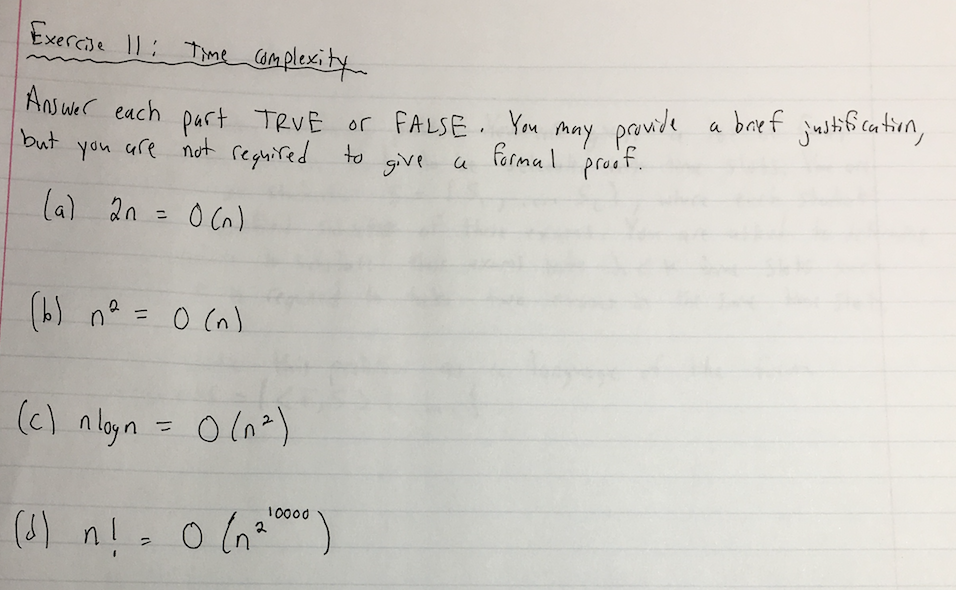 Exercise 11: Time Complexity
Answer each part TRUE or FALSE. You may provide a brief justification,
but you are not required to give a formal proof.
(a) 2n = O(n)
(b) n² = O(n)
(c) nlogn = O(n²)
(d) n! = O(n^2^10000)